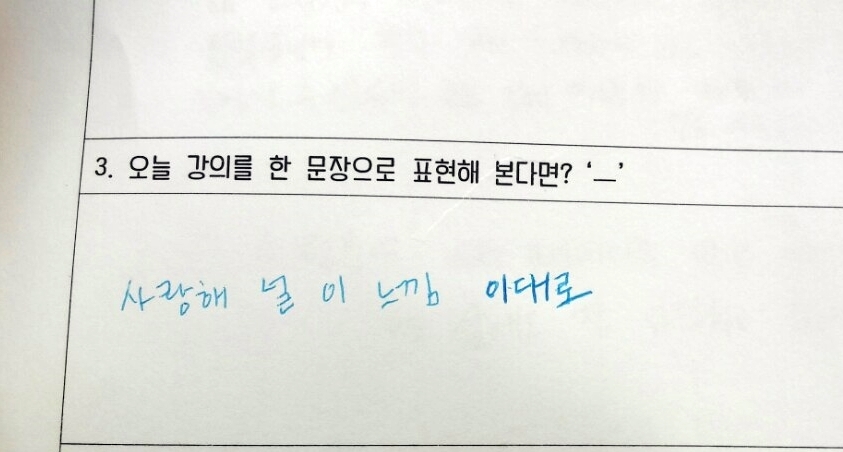 3. 오늘 강의를 한 문장으로 표현해 본다면? ‘ㅡ’
사랑해 널 이 느낌 이대로